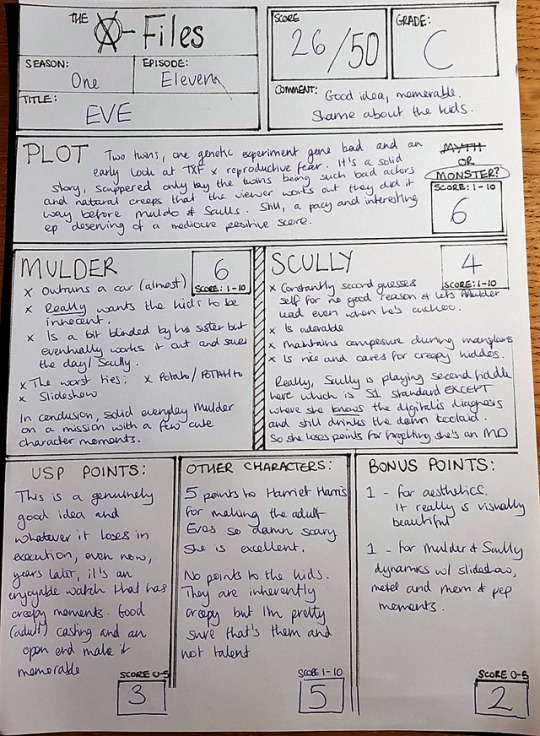 THE X-Files
SEASON:
One
EPISODE:
Eleven
TITLE:
EVE
SCORE
26/50
GRADE:
C
COMMENT: Good idea, memorable.
Shame about the kids.
PLOT
Two twins, one genetic experiment gone bad and an
early look at TXF x reproductive fear. It's a solid
story, scuppered only by the twins being such bad actors
and natural creeps that the viewer works out they did it
way before muldo & sculls. Still, a pacy and interesting
ep deserving of a mediocre positive score.
MYTH
OR
MONSTER?
SCORE: 1-10
6
MULDER
6
SCORE: 1-10
x Outruns a car (almost)
x Really wants the kids to be
innocent.
x Is a bit blinded by his sister but
eventually works it out and saves
the day/Scully.
x The worst ties:
x Potato/POTAHTO
x Slideshow
In conclusion, solid everyday Mulder
on a mission with a few cute
character moments.
SCULLY
4
SCORE: 1-10
x Constantly second guesses
self for no good reason & lets Mulder
lead even when he's cuckoo.
x Is adorable
x maintains composure during mansplains
x Is nice and cares for creepy kiddos.
Really, Scully is playing second fiddle
here which is S1 standard EXCEPT
where she knows the digitalis diagnosis
and still drinks the damn
So she loses points for forgetting she's an MD
USP POINTS:
This is a genuinely
good idea and
whatever it loses in
execution, even now,
years later, it's an
enjoyable watch that has
creepy moments. Good
(adult) casting and an
open end make it
memorable
SCORE 0-5
3
OTHER CHARACTERS:
5 points to Harriet Harris
for making the adult
Eves so damn scary
She is excellent.
No points to the kids.
They are inherently
creepy but I'm pretty
sure that's them and
not talent
SCORE 1-10
5
BONUS POINTS:
1 - for aesthetics.
It really is visually
beautiful
1 - for Mulder & Scully
dynamics w/ slideshow,
motel and mom & pop
moments.
SCORE 0-5
2